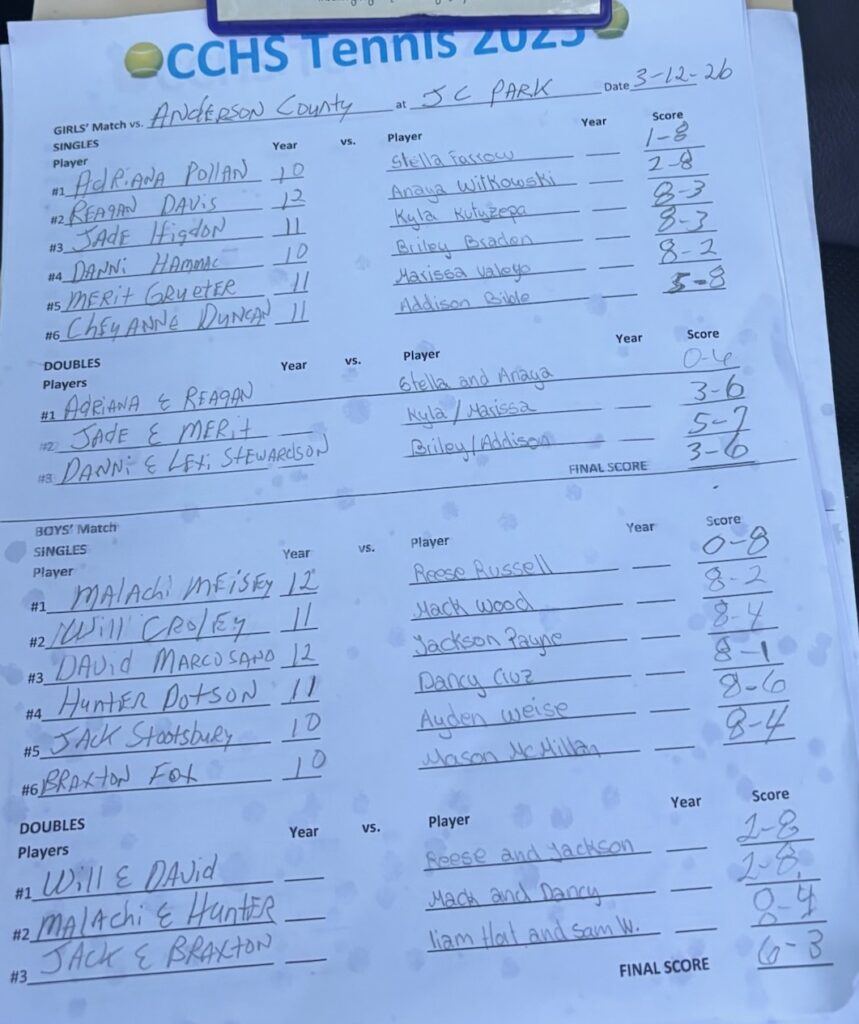 CCHS Tennis 2025
GIRLS' Match vs. ANDERSON COUNTY at JC PARK Date 3-12-26
SINGLES
Player Year vs. Player Year Score
#1 ADRIANA POLLAN 10 Stella Farrow 1-8
#2 REAGAN DAVIS 12 Anaya Witkowski 2-8
#3 JADE Higdon 11 Kyla Kutyzepa 8-3
#4 DANNI HAMMAC 10 Briley Braden 8-3
#5 MERIT GRUETER 11 Marissa Valeyo 8-2
#6 CHEYANNE DUNCAN 11 Addison Bible 5-8
DOUBLES
Players Year vs. Player Year Score
#1 ADRIANA & REAGAN Stella and Anaya 0-6
#2 JADE & MERIT Kyla/Marissa 3-6
#3 DANNI & LEXI STEWARDSON Briley/Addison 5-7
FINAL SCORE 3-6
BOYS' Match
SINGLES
Player Year vs. Player Year Score
#1 MALACHI MEISEY 12 Reese Russell 0-8
#2 Will CROLEY 11 Mack Wood 8-2
#3 DAVID MARCOSANO 12 Jackson Payne 8-4
#4 HUNTER DOTSON 11 Dancy Cruz 8-1
#5 JACK Stootsbury 10 Ayden Weise 8-6
#6 BRAXTON FOX 10 Mason McMillan 8-4
DOUBLES
Players Year vs. Player Year Score
#1 Will & DAVID Reese and Jackson 2-8
#2 MALACHI & HUNTER Mack and Dancy 2-8
#3 JACK & BRAXTON liam Hat and Sam W. 8-4
FINAL SCORE 6-3